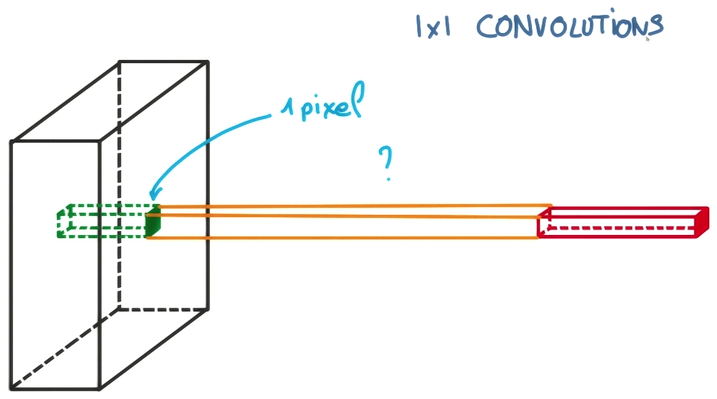 1x1 CONVOLUTIONS
1 pixel
?